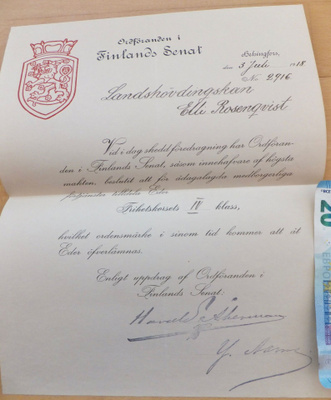 Ordföranden i
Finlands Senat
Helsingfors,
den 3 Juli 1918
No. 2916
Landshövdingskan
Elli Rosenqvist
Vid i dag skedd föredragning har Ordföran-
den i Finlands Senat, såsom innehafvare af högsta
makten, beslutit att för ådagalagda medborgerliga
förtjänster tilldela Eder
Frihetskorsets IV klass,
hvilket ordensmärke i sinom tid kommer att åt
Eder öfverlämnas.
Enligt uppdrag af Ordföranden i
Finlands Senat:
Harald Åkerman
20